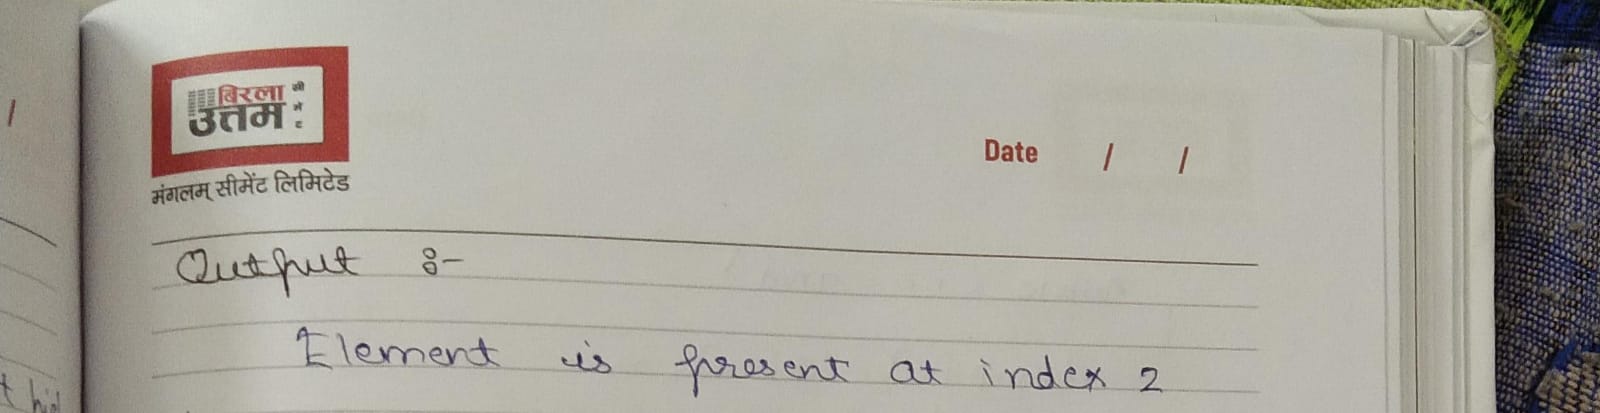 बिरला
उत्तम
सीमेंट
मंगलम् सीमेंट लिमिटेड
Date / /
Output :-
Element is present at index 2